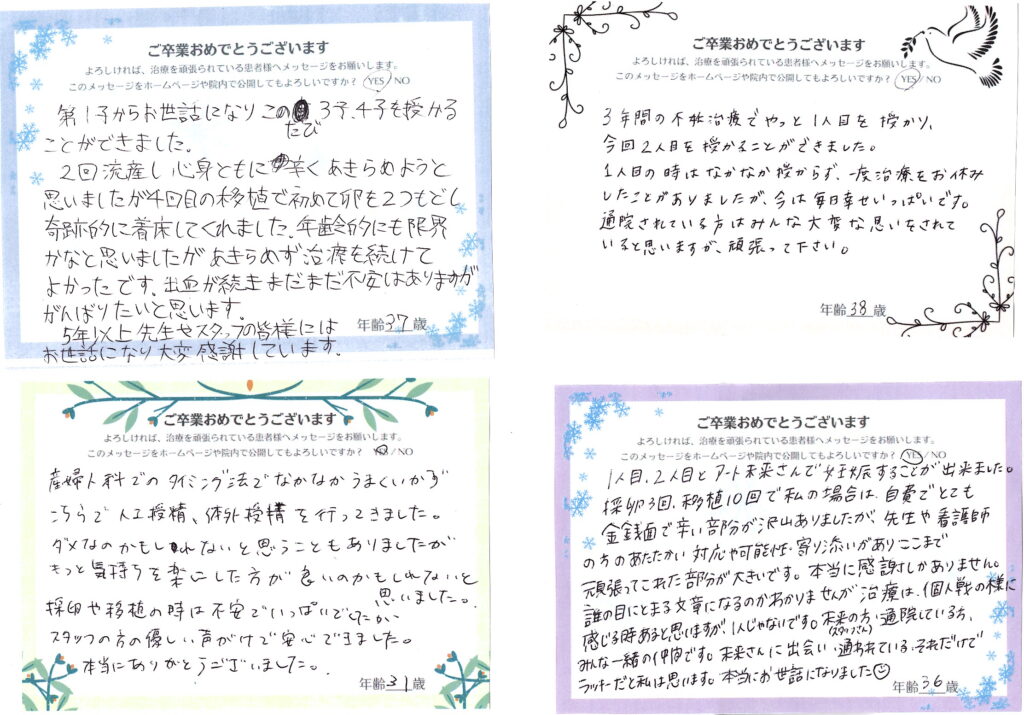 ご卒業おめでとうございます
よろしければ、治療を頑張られている患者様へメッセージをお願いします。
このメッセージをホームページや院内で公開してもよろしいですか？ YES / NO
第1子からお世話になり この 3子、4子を授かる
たび
ことができました。
2回流産し 心身ともに辛く あきらめようと
思いましたが4回目の移植で初めて卵を2つもどし
奇跡的に着床してくれました。年齢的にも限界
かなと思いましたが あきらめず 治療を続けて
よかったです。出血が続きまだまだ不安はありますが
がんばりたいと思います。
年齢37歳
5年以上 先生やスタッフの皆様には
お世話になり 大変 感謝しています。
ご卒業おめでとうございます
よろしければ、治療を頑張られている患者様へメッセージをお願いします。
このメッセージをホームページや院内で公開してもよろしいですか？ YES / NO
3年間の不妊治療でやっと1人目を授かり、
今回2人目を授かることができました。
1人目の時はなかなか授からず、一度治療をお休み
したことがありましたが、今は毎日幸せいっぱいです。
通院されている方はみんな大変な思いをされて
いると思いますが、頑張って下さい。
年齢38歳
ご卒業おめでとうございます
よろしければ、治療を頑張られている患者様へメッセージをお願いします。
このメッセージをホームページや院内で公開してもよろしいですか？ YES / NO
産婦人科でのタイミング法でなかなかうまくいかず
こちらで人工授精、体外授精を行ってきました。
ダメなのかもしれないと思うこともありましたが
もっと気持ちを楽にした方が良いのかもしれないと
思いました。
採卵や移植の時は不安でいっぱいでしたが
スタッフの方の優しい声がけで安心できました。
本当にありがとうございました。
年齢31歳
ご卒業おめでとうございます
よろしければ、治療を頑張られている患者様へメッセージをお願いします。
このメッセージをホームページや院内で公開してもよろしいですか？ YES / NO
1人目、2人目とアート未来さんで妊娠することが出来ました。
採卵3回、移植10回で私の場合は、自費でとても
金銭面で辛い部分が沢山ありましたが、先生や看護師
の方のあたたかい対応や可能性・寄り添いがありここまで
頑張ってこれた部分が大きいです。本当に感謝しかありません。
誰の目にとまる文章になるのかわかりませんが 治療は、個人戦の様に
感じる時あると思いますが、1人じゃないです。未来の方、通院している方、
(スタッフさん)
みんな一緒の仲間です。未来さんに出会い・通われている、それだけで
ラッキーだと私は思います。本当にお世話になりました
年齢36歳